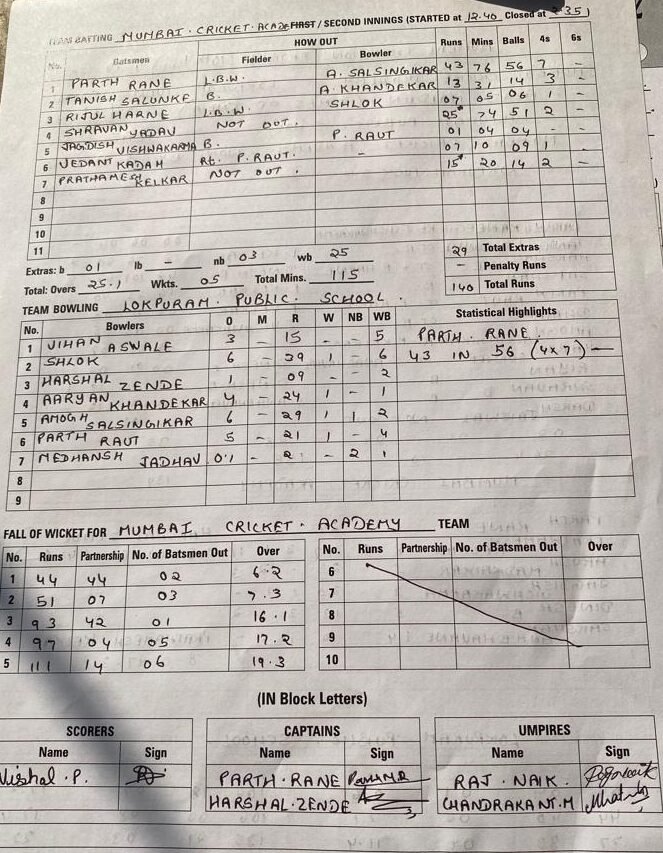 TEAM BATTING MUMBAI. CRICKET. ACADE FIRST / SECOND INNINGS (STARTED at 12.40 Closed at 2:35)
No. Batsmen HOW OUT Runs Mins Balls 4s 6s
Fielder Bowler
1 PARTH RANE L.B.W. A. SALSINGIKAR 43 76 56 7 -
2 TANISH SALUNKE B. A. KHANDEKAR 13 31 14 3 -
3 RIJUL HARNE L.B.W. SHLOK 07 05 06 1 -
4 SHRAVAN YADAV NOT OUT. 25* 74 51 2 -
5 JAGDISH VISHWAKARMA B. P. RAUT 01 04 04 - -
6 VEDANT KADAM Rt. P. RAUT. - 07 10 09 1 -
7 PRATHAMESH KELKAR NOT OUT. 15* 20 14 2 -
8
9
10
11
Extras: b 01 lb - nb 03 wb 25 29 Total Extras
- Penalty Runs
Total: Overs 25.1 Wkts. 05 Total Mins. 115 140 Total Runs
TEAM BOWLING LOKPURAM. PUBLIC. SCHOOL.
No. Bowlers O M R W NB WB Statistical Highlights
1 VIHAN ASWALE 3 - 15 - - 5 PARTH. RANE
2 SHLOK 6 - 39 1 - 6 43 IN 56 (4x7) -
3 HARSHAL ZENDE 1 - 09 - - 2
4 AARYAN KHANDEKAR 4 - 24 1 - 1
5 AMOGH SALSINGIKAR 6 - 29 1 1 2
6 PARTH RAUT 5 - 21 1 - 4
7 MEDHANSH JADHAV 0.1 - 2 - 2 1
8
9
FALL OF WICKET FOR MUMBAI CRICKET. ACADEMY TEAM
No. Runs Partnership No. of Batsmen Out Over No. Runs Partnership No. of Batsmen Out Over
1 44 44 02 6.2 6
2 51 07 03 7.3 7
3 93 42 01 16.1 8
4 97 04 05 17.2 9
5 111 14 06 19.3 10
(IN Block Letters)
SCORERS CAPTAINS UMPIRES
Name Sign Name Sign Name Sign
Vishal.P. PARTH.RANE RAJ.NAIK.
HARSHAL.ZENDE CHANDRAKANT.M